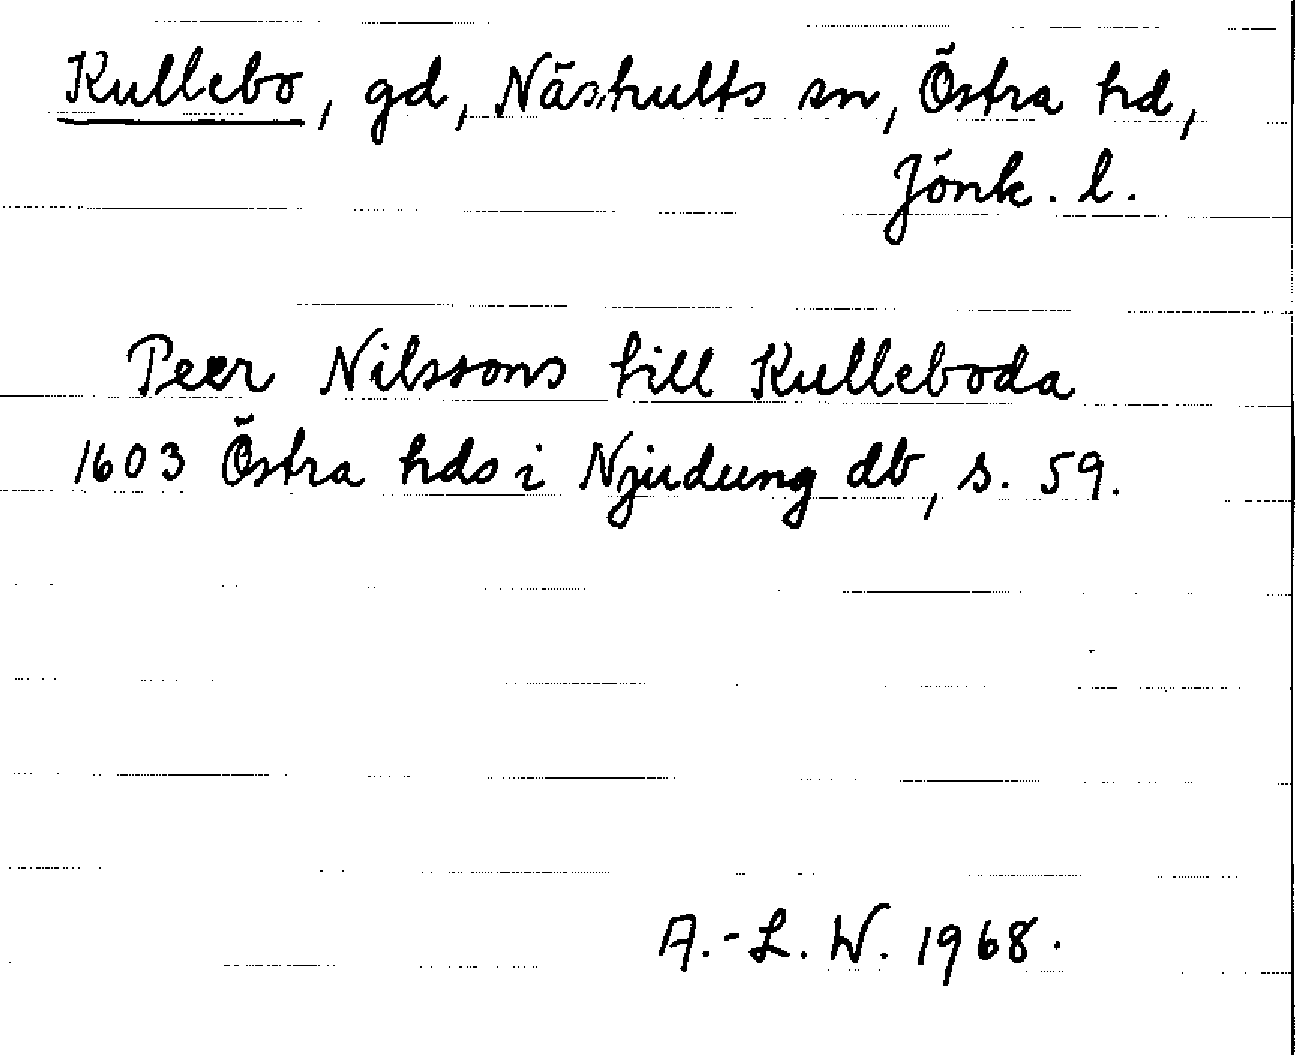 Kullebo, gd, Näshults sn, Östra hd,
Jönk. l.
Peer Nilssons till Kulleboda
1603 Östra hds i Njudung db, s. 59.
A.-L. W. 1968.